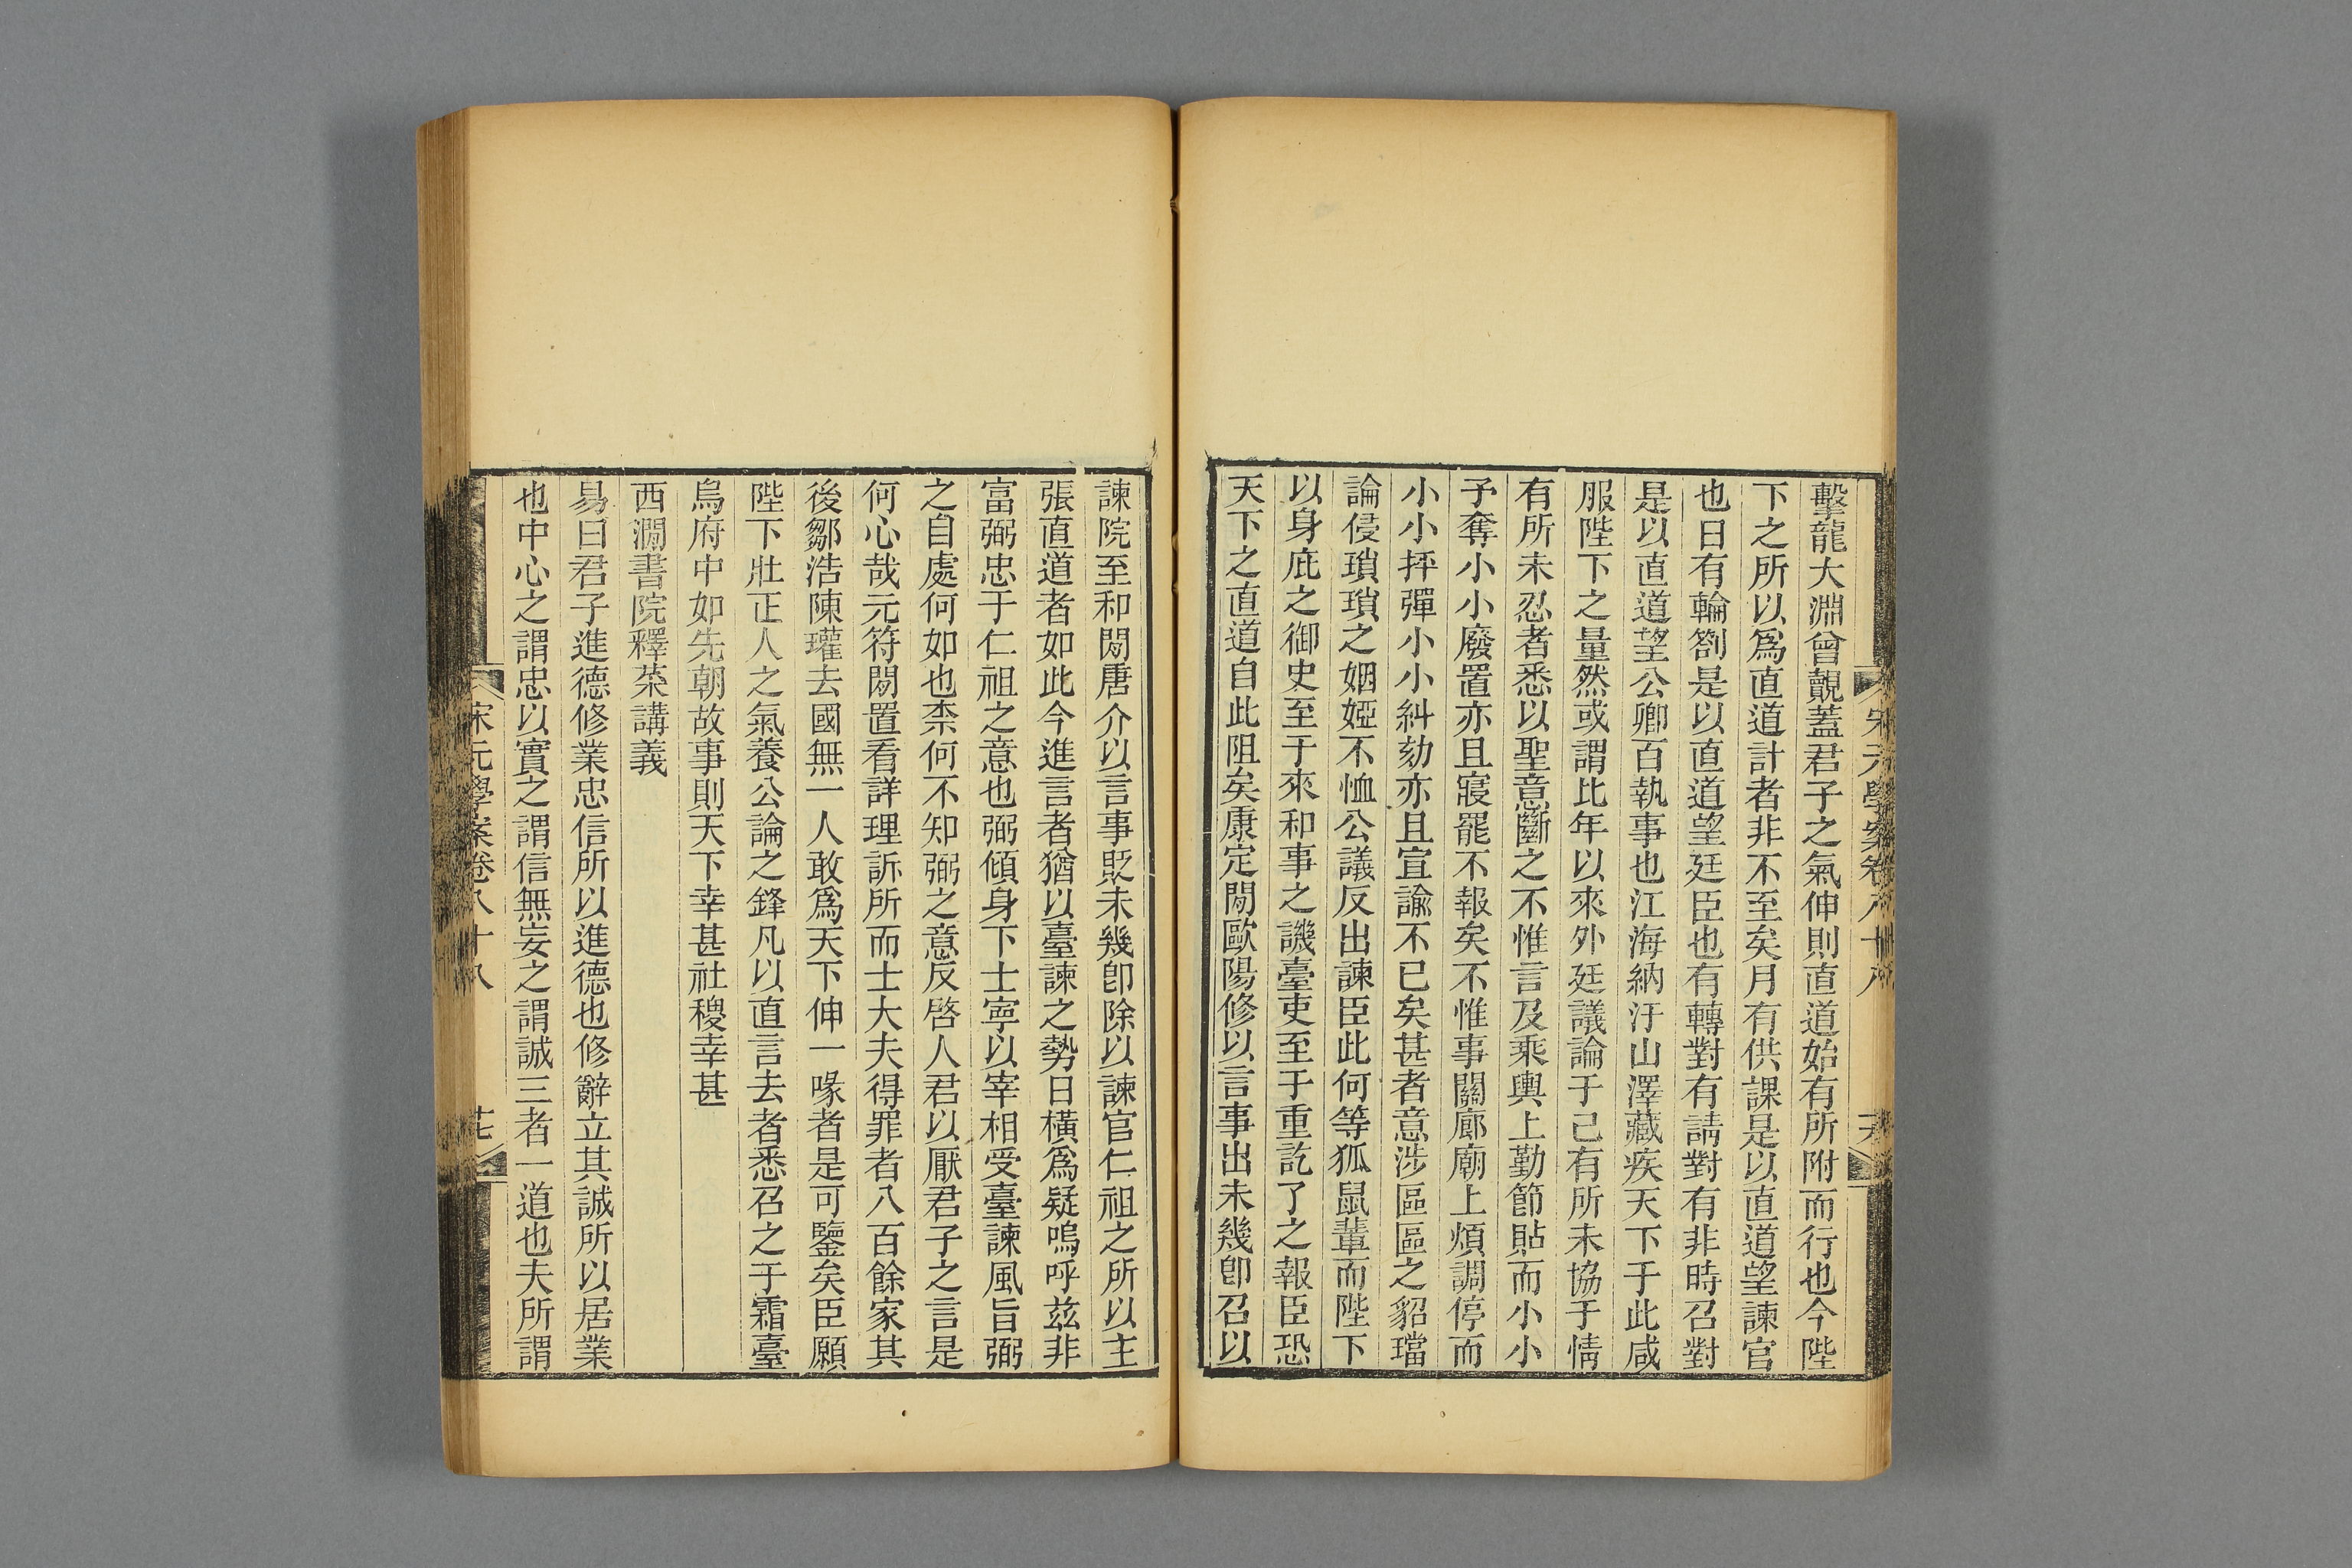 擊龍大淵曾覿蓋君子之氣伸則直道始有所附而行也今陛
下之所以爲直道計者非不至矣月有供課是以直道望諫官
也日有輪劄是以直道望廷臣也有轉對有請對有非時召對
是以直道望公卿百執事也江海納汙山澤藏疾天下于此咸
服陛下之量然或謂比年以來外廷議論于己有所未協于情
有所未忍者悉以聖意斷之不惟言及乘輿上勤節貼而小小
予奪小小廢置亦且寢罷不報矣不惟事關廊廟上煩調停而
小小抨彈小小糾劾亦且宣諭不已矣甚者意涉區區之貂璫
論侵瑣瑣之姻婭不恤公議反出諫臣此何等狐鼠輩而陛下
以身庇之御史至于來和事之譏臺吏至于重訖了之報臣恐
天下之直道自此阻矣康定閒歐陽修以言事出未幾卽召以
宋元學案卷八十八
諫院至和閒唐介以言事貶未幾卽除以諫官仁祖之所以主
張直道者如此今進言者猶以臺諫之勢日橫爲疑嗚呼兹非
富弼忠于仁祖之意也弼傾身下士寧以宰相受臺諫風旨弼
之自處何如也柰何不知弼之意反啓人君以厭君子之言是
何心哉元符閒置看詳理訴所而士大夫得罪者八百餘家其
後鄒浩陳瓘去國無一人敢爲天下伸一喙者是可鑒矣臣願
陛下壯正人之氣養公論之鋒凡以直言去者悉召之于霜臺
烏府中如先朝故事則天下幸甚社稷幸甚
西澗書院釋菜講義
易曰君子進德修業忠信所以進德也修辭立其誠所以居業
也中心之謂忠以實之謂信無妄之謂誠三者一道也夫所謂
宋元學案卷八十八